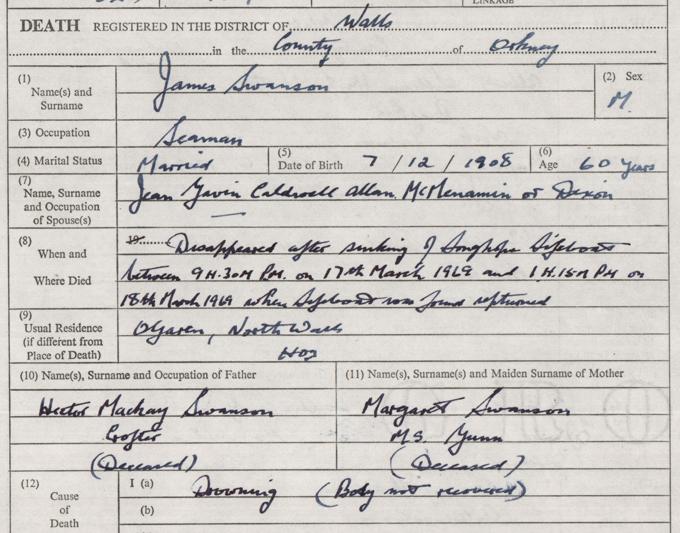 LINKAGE
DEATH REGISTERED IN THE DISTRICT OF Walls
in the County of Orkney
(1) Name(s) and Surname James Swanson (2) Sex M.
(3) Occupation Seaman
(4) Marital Status Married (5) Date of Birth 7 / 12 / 1908 (6) Age 60 Years
(7) Name, Surname and Occupation of Spouse(s) Jean Gavin Caldwell Allan McMenamin or Dixon
(8) When and Where Died 19 Disappeared after sinking of Longhope Lifeboat
between 9 H.30M P.M. on 17th March 1969 and 1 H.15M PM on
18th March 1969 when Lifeboat was found upturned
(9) Usual Residence (if different from Place of Death) North Walls
Hoy
(10) Name(s), Surname and Occupation of Father
(11) Name(s), Surname(s) and Maiden Surname of Mother
Hector Mackay Swanson Margaret Swanson
Crofter M.S. Gunn
(Deceased) (Deceased)
(12) Cause of Death I (a) Drowning (Body not recovered)
(b)